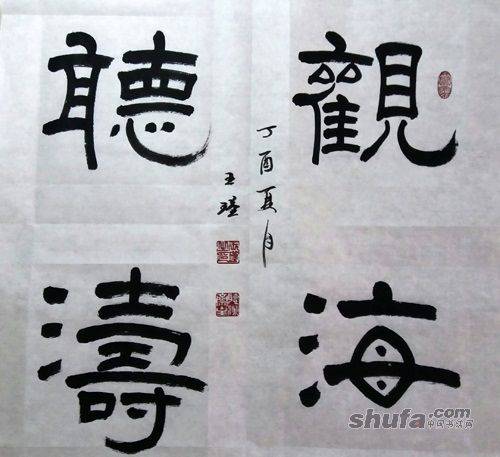 觀海
聽濤
丁酉夏月
shufa.com
中国书法网